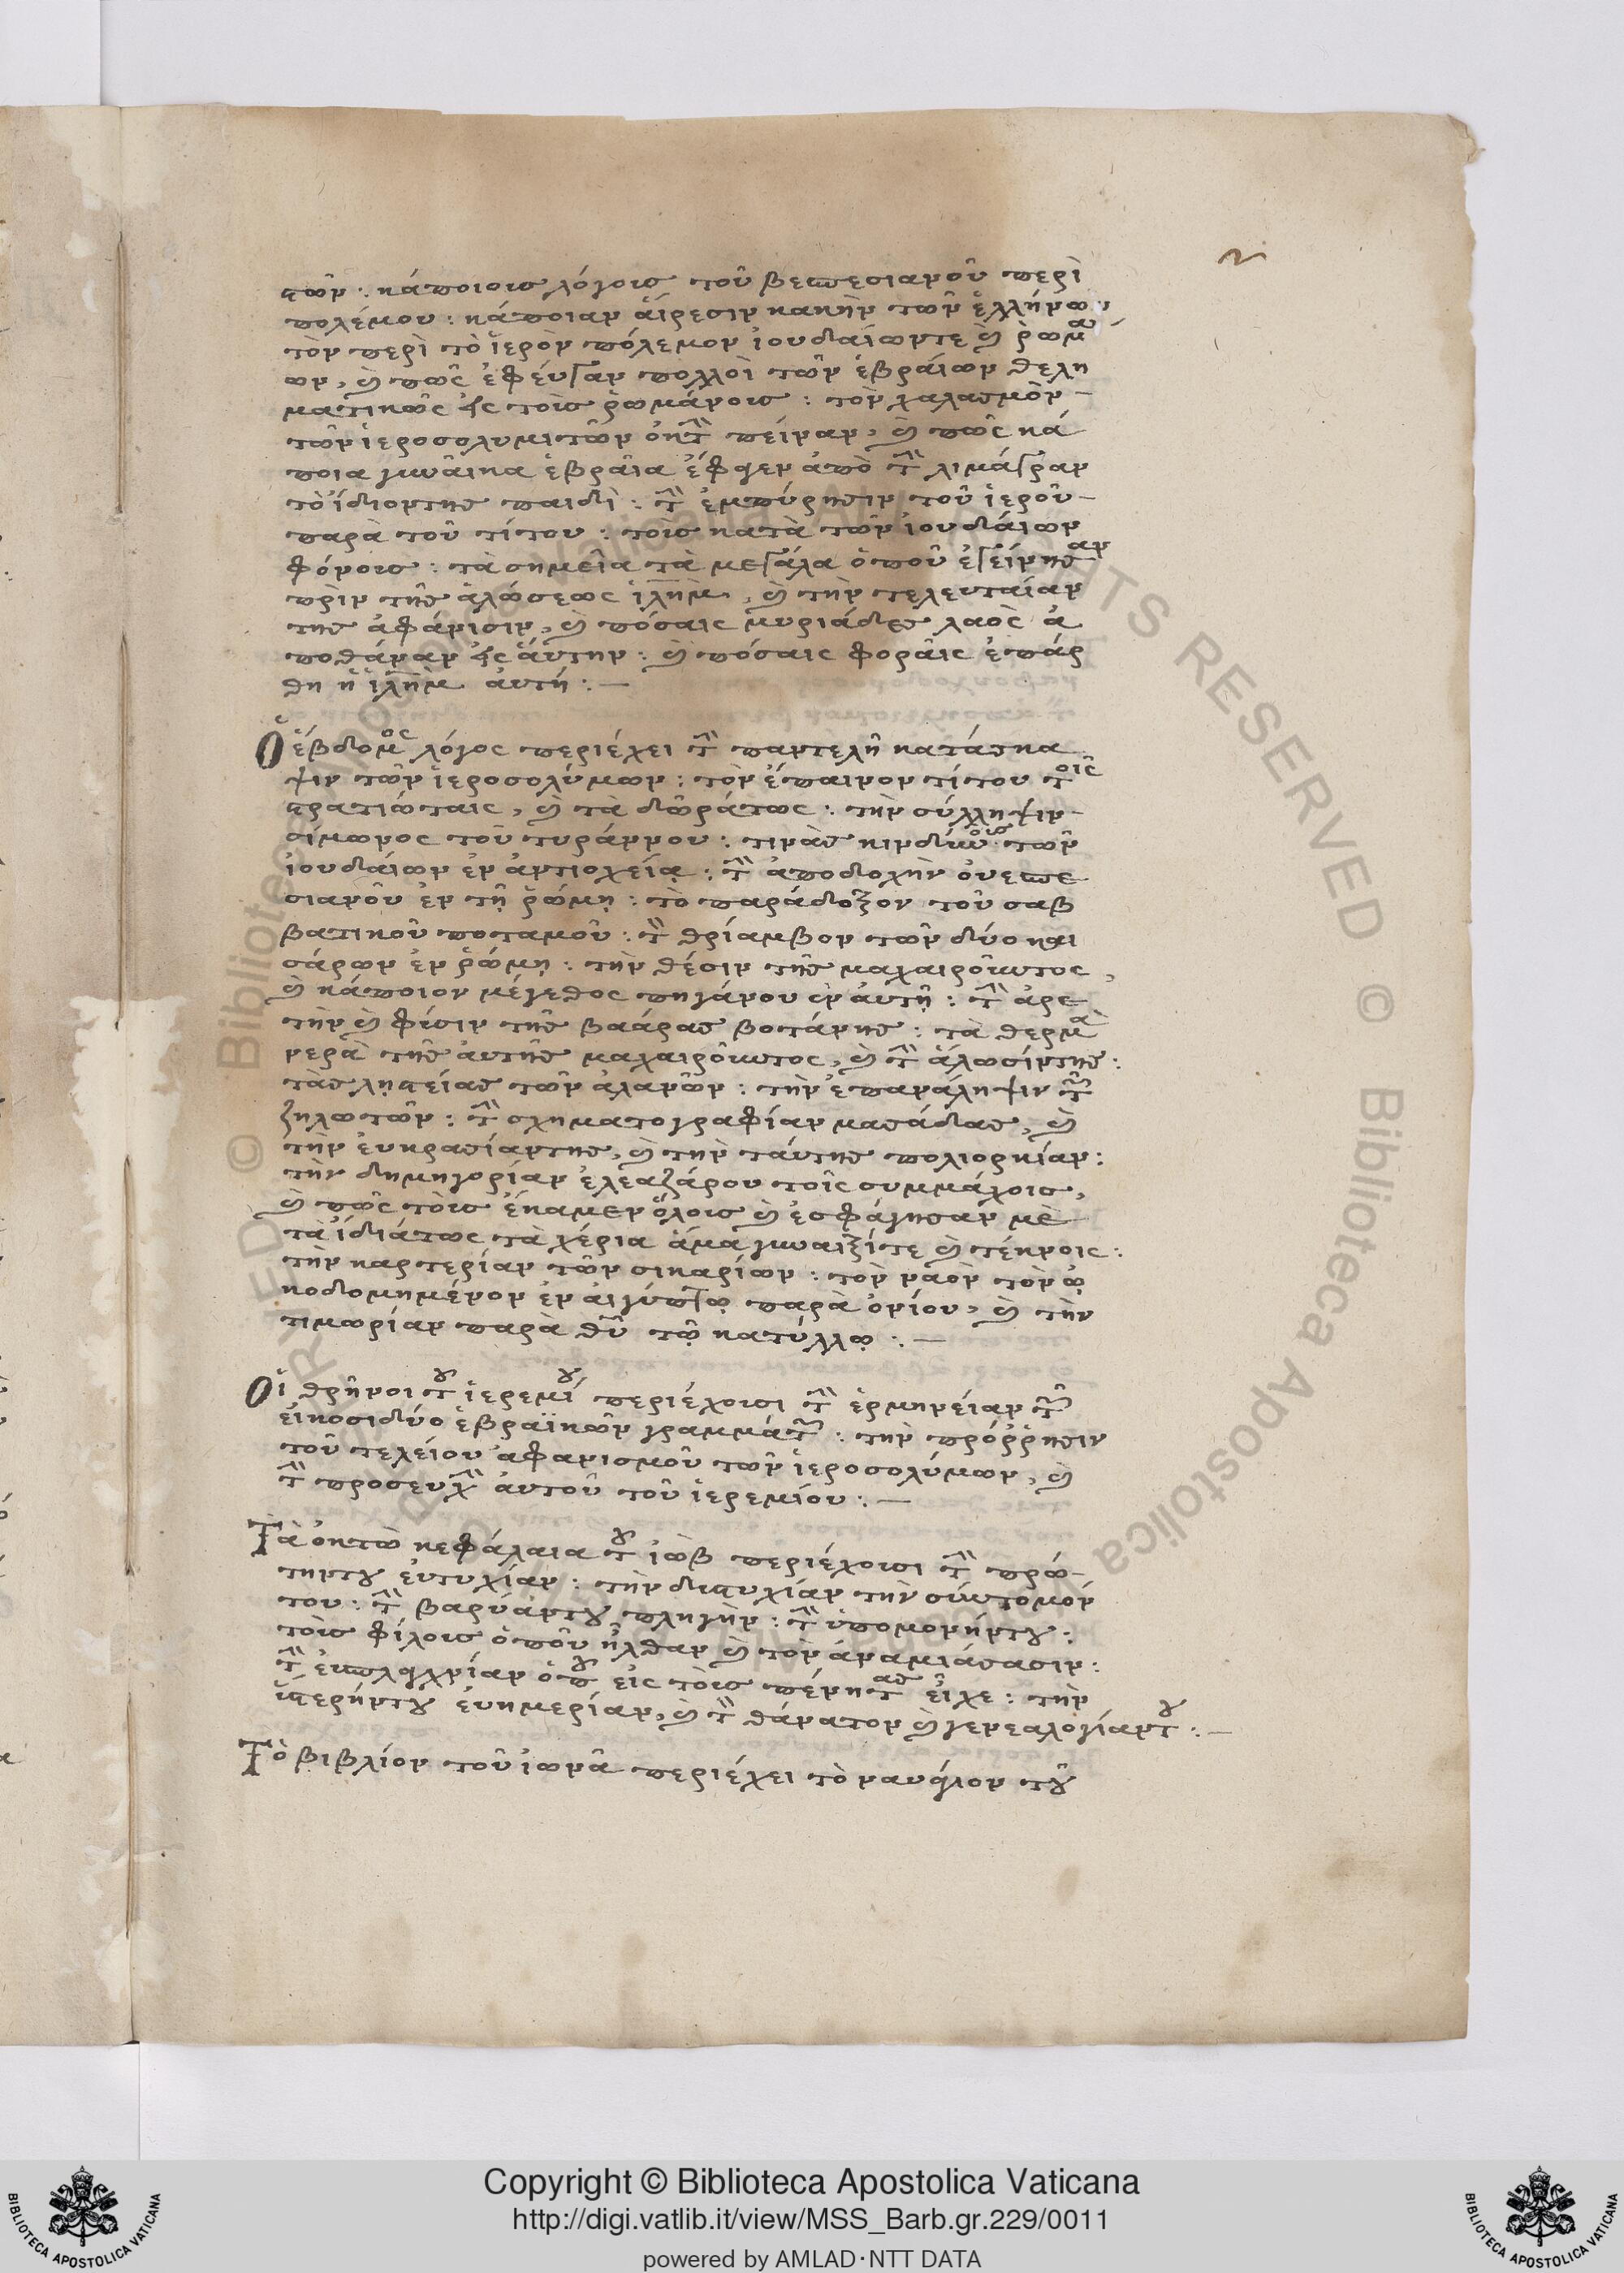 των: κάποιοις λόγοις τοῦ βεσπεσιανοῦ περὶ
πολέμου: κάποιαν αἵρεσιν κακὴν τῶν ἑλλήνων
τὸν περὶ τὸ ἱερὸν πόλεμον ἰουδαίωντε καὶ ῥωμα
ων, καὶ πῶς ἐφεύγαν πολλοὶ τῶν ἑβραίων θελη
ματικῶς εἰς τοὶς ῥωμάνοις: τὸν χαλασμὸν
τῶν ἱεροσολυμιτῶν ἐκ τὴν πείναν, καὶ πῶς κά
ποια γυναῖκα ἑβραῖα ἔφαγεν ἀπὸ τὴν λιμάγραν
τὸ ἴδιοντης παιδὶ: τὴν ἐμπύρησιν τοῦ ἱεροῦ
παρὰ τοῦ τίτου: τοὶς κατὰ τῶν ἰουδαίων
φόνοις: τὰ σημεῖα τὰ μεγάλα ὁποῦ ἐγείνησαν
πρὶν τῆς ἁλώσεως ἱλημ, καὶ τὴν τελευταίαν
της ἀφάνισιν, καὶ πόσαις μυριάδες λαὸς ἀ
ποθάναν εἰς αὔτην: καὶ πόσαις φοραῖς ἐπάρ
θη ἡ ἱλημ αὐτή:—
Ὁ ἕβδομος λόγος περιέχει τὴν παντελῆ κατάσκα
ψιν τῶν ἱεροσολύμων: τὸν ἔπαινον τίτου τοῖς
στρατιώταις, καὶ τὰ δῶράτως: τὴν σύλληψιν
σίμωνος τοῦ τυράννου: τινὰς κινδύνοις τῶν
ἰουδαίων ἐν ἀντιοχείᾳ: τὴν ἀποδοχὴν οὐεσπε
σιανοῦ ἐν τῇ ῥώμῃ: τὸ παράδοξον τοῦ σαβ
βατικοῦ ποταμοῦ: τὸν θρίαμβον τῶν δύο και
σάρων ἐν ῥώμῃ: τὴν θέσιν τῆς μαχαιροῦντος,
καὶ κάποιον μέγεθος πηγάνου ἐν αὐτῇ: τὴν ἀρε
τὴν καὶ φύσιν τῆς βαάρας βοτάνης: τὰ θερμὰ
νερὰ τῆς αὐτῆς μαχαιροῦντος, καὶ τὴν ἅλωσίντης:
τὰς λῃστείας τῶν ἀλανῶν: τὴν ἐπανάληψιν τῶν
ζηλωτῶν: τὴν σχηματογραφίαν μασάδας, καὶ
τὴν εὐκρασίαντης, καὶ τὴν ταύτης πολιορκίαν:
τὴν δημηγορίαν ἐλεαζάρου τοῖς συμμάχοις,
καὶ πῶς τοὶς ἔκαμεν ὅλοις καὶ ἐσφάγησαν μὲ
τὰ ἰδιάτως τὰ χέρια ἅμα γυναιξίτε καὶ τέκνοις:
τὴν καρτερίαν τῶν σικαρίων: τὸν ναὸν τὸν ᾠ
κοδομημένον ἐν αἰγύπτῳ παρὰ ὀνίου, καὶ τὴν
τιμωρίαν παρὰ θῦ τῷ κατύλλῳ:—
Οἱ θρῆνοι τοῦ ἱερεμίου περιέχουσι τὴν ἑρμηνείαν τῶν
εἰκοσιδύο ἑβραϊκῶν γραμμάτων: τὴν πρόῤῥησιν
τοῦ τελείου ἀφανισμοῦ τῶν ἱεροσολύμων, καὶ
τὴν προσευχὴν αὐτοῦ τοῦ ἱερεμίου:—
Τὰ ὀκτὼ κεφάλαια τοῦ ἰὼβ περιέχουσι τὴν πρώ
τηντου εὐτυχίαν: τὴν δυστυχίαν τὴν σύντομόν
του: τὴν βαρύαντου πληγὴν: τὴν ὑπομονήντου:
τοὶς φίλοις ὁποῦ ἦλθαν καὶ τὸν ἀναμιάσασιν:
τὴν εὐσπλαχνίαν ὁποῦ εἰς τοὶς πένητας εἶχε: τὴν
ὑστερήντου εὐημερίαν, καὶ τὸν θάνατον καὶ γενεαλογίαντου:—
Τὸ βιβλίον τοῦ ἰωνᾶ περιέχει τὸ ναυάγιον τοῦ
Copyright © Biblioteca Apostolica Vaticana
http://digi.vatlib.it/view/MSS_Barb.gr.229/0011
powered by AMLAD·NTT DATA